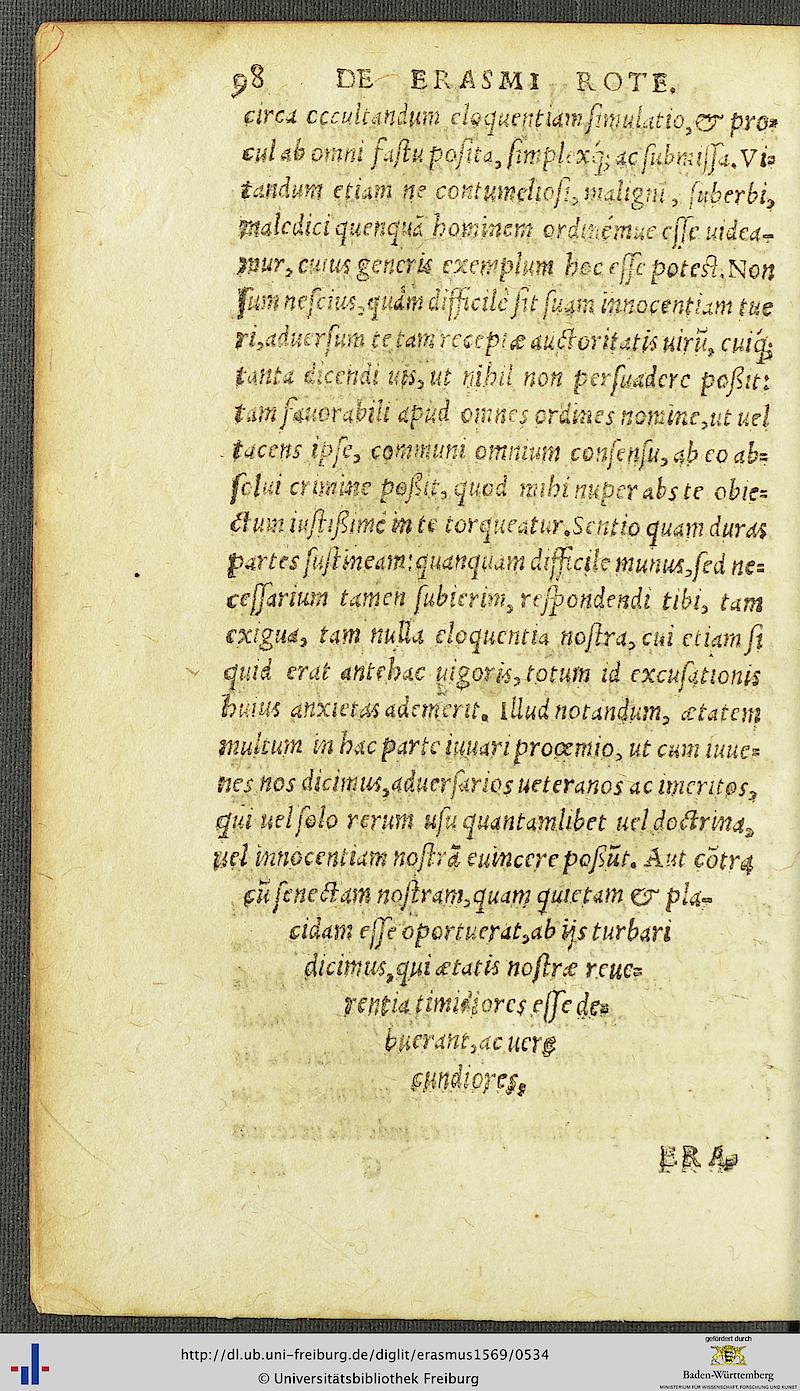 98 DE ERASMI ROTE.
circa occultandum eloquentiam simulatio, & pro-
cul ab omni fastu posita, simplexq́; ac submissa. Vi-
tandum etiam ne contumeliosi, maligni, superbi,
maledici quenquā hominem ordinémue esse uidea-
mur, cuius generis exemplum hoc esse potest. Non
sum nescius, quàm difficilè sit suam innocentiam tue
ri, aduersum te tam receptæ auctoritatis uirū, cuiq́;
tanta dicendi uis, ut nihil non persuadere poßit:
tam fauorabili apud omnes ordines nomine, ut uel
tacens ipse, communi omnium consensu, ab eo ab-
solui crimine poßit, quod mihi nuper abs te obie-
ctum iustißimè in te torqueatur. Sentio quam duras
partes sustineam: quanquam difficile munus, sed ne-
cessarium tamen subierim, respondendi tibi, tam
exigua, tam nulla eloquentia nostra, cui etiam si
quid erat antehac uigoris, totum id excusationis
huius anxietas ademerit. Illud notandum, ætatem
multum in hac parte iuuari proœmio, ut cum iuue-
nes nos dicimus, aduersarios ueteranos ac imeritos,
qui uel solo rerum usu quantamlibet uel doctrina,
uel innocentiam nostrā euincere poßūt. Aut cōtra
cū senectam nostram, quam quietam & pla-
cidam esse oportuerat, ab ijs turbari
dicimus, qui ætatis nostræ reue-
rentia timidiores esse de-
buerant, ac uere
cundiores.
ERA-
http://dl.ub.uni-freiburg.de/diglit/erasmus1569/0534
© Universitätsbibliothek Freiburg
gefördert durch
Baden-Württemberg
MINISTERIUM FÜR WISSENSCHAFT, FORSCHUNG UND KUNST